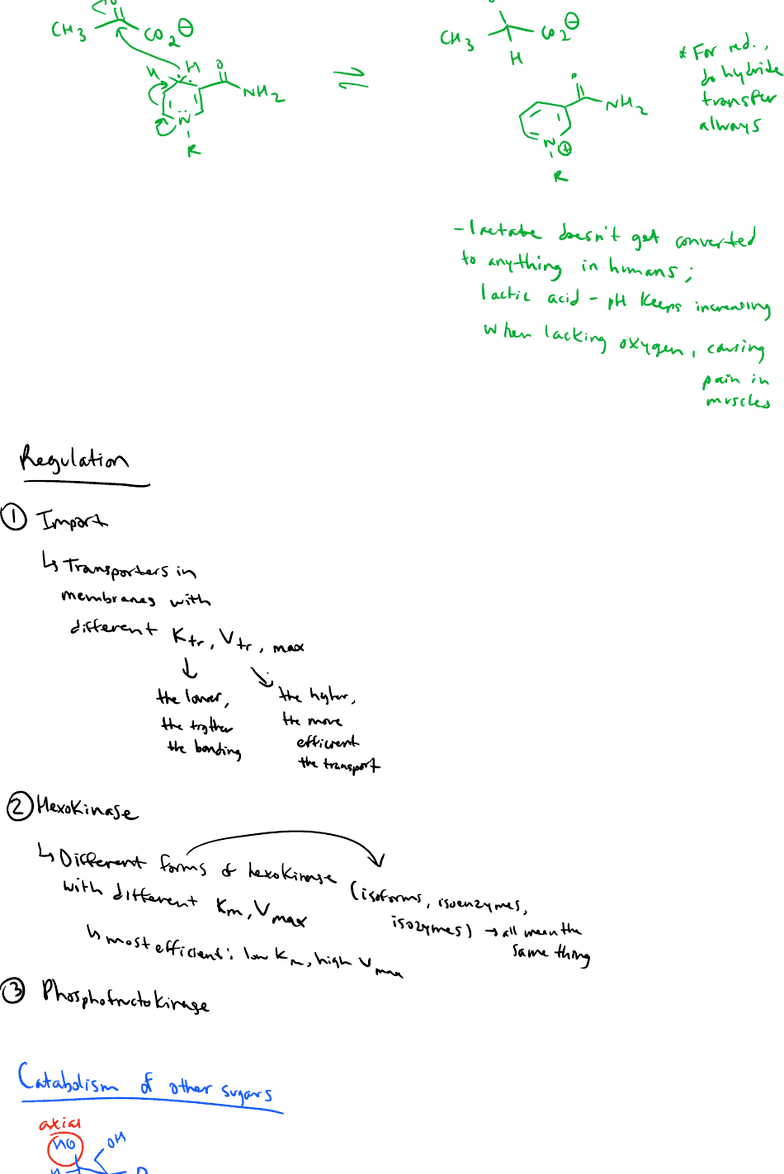 O
CH₃ CO₂ ⊖
H H O
NH₂
N
R
⇌
CH₃ CO₂ ⊖
H
O
NH₂
N ⊕
R
* For red.,
do hydride
transfer
always
- lactate doesn't get converted
to anything in humans;
lactic acid - pH keeps increasing
when lacking oxygen, causing
pain in
muscles
Regulation
① Import
↳ Transporters in
membranes with
different Ktr, Vtr, max
↓ ↘
the lower,
the tighter
the bonding
the higher,
the more
efficient
the transport
② Hexokinase
↳ Different forms of hexokinase (isoforms, isoenzymes,
isozymes) → all mean the
same thing
with different Km, Vmax
↳ most efficient: low Km, high Vmax
③ Phosphofructokinase
Catabolism of other sugars
axial
HO OH